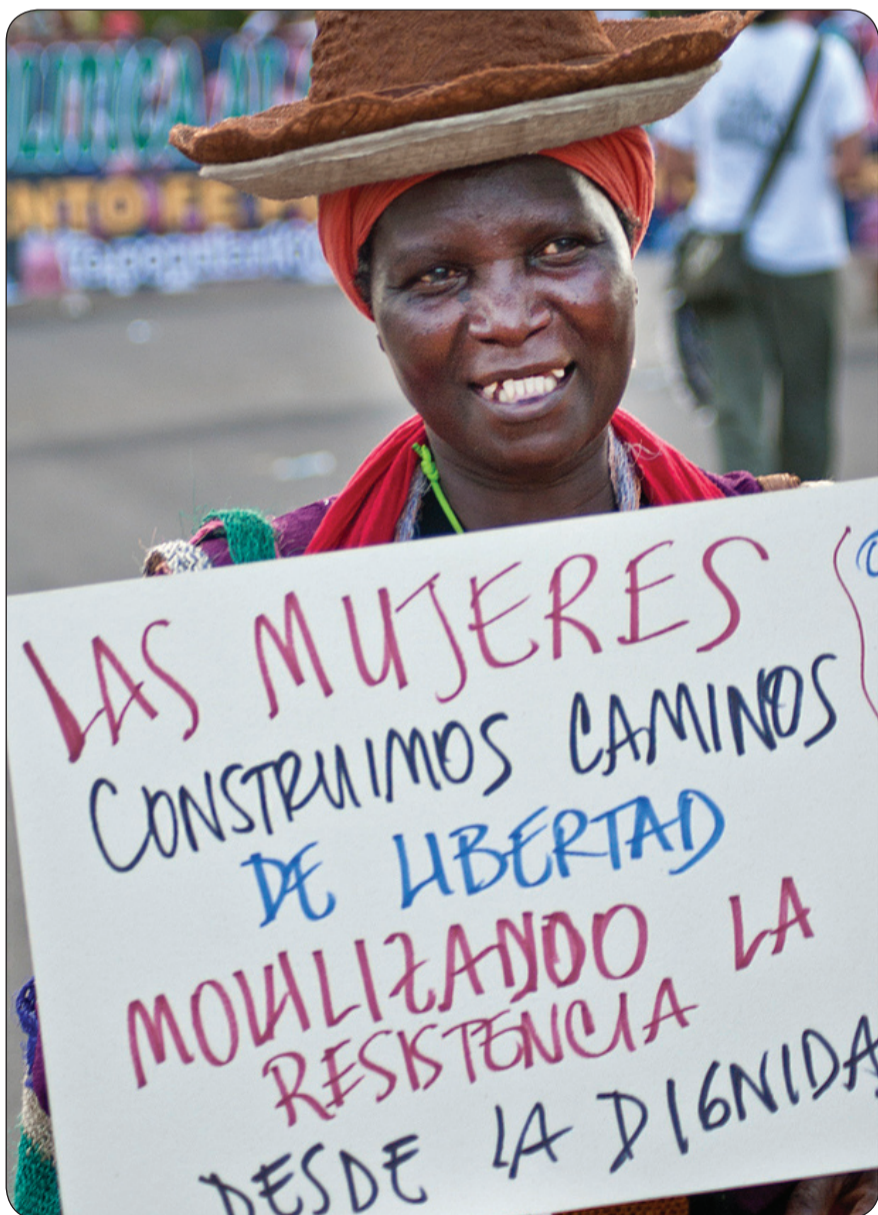 NTO FE
LAS MUJERES
CONSTRUIMOS CAMINOS
DE LIBERTAD
MOVILIZANDO LA
RESISTENCIA
DESDE LA DIGNIDA